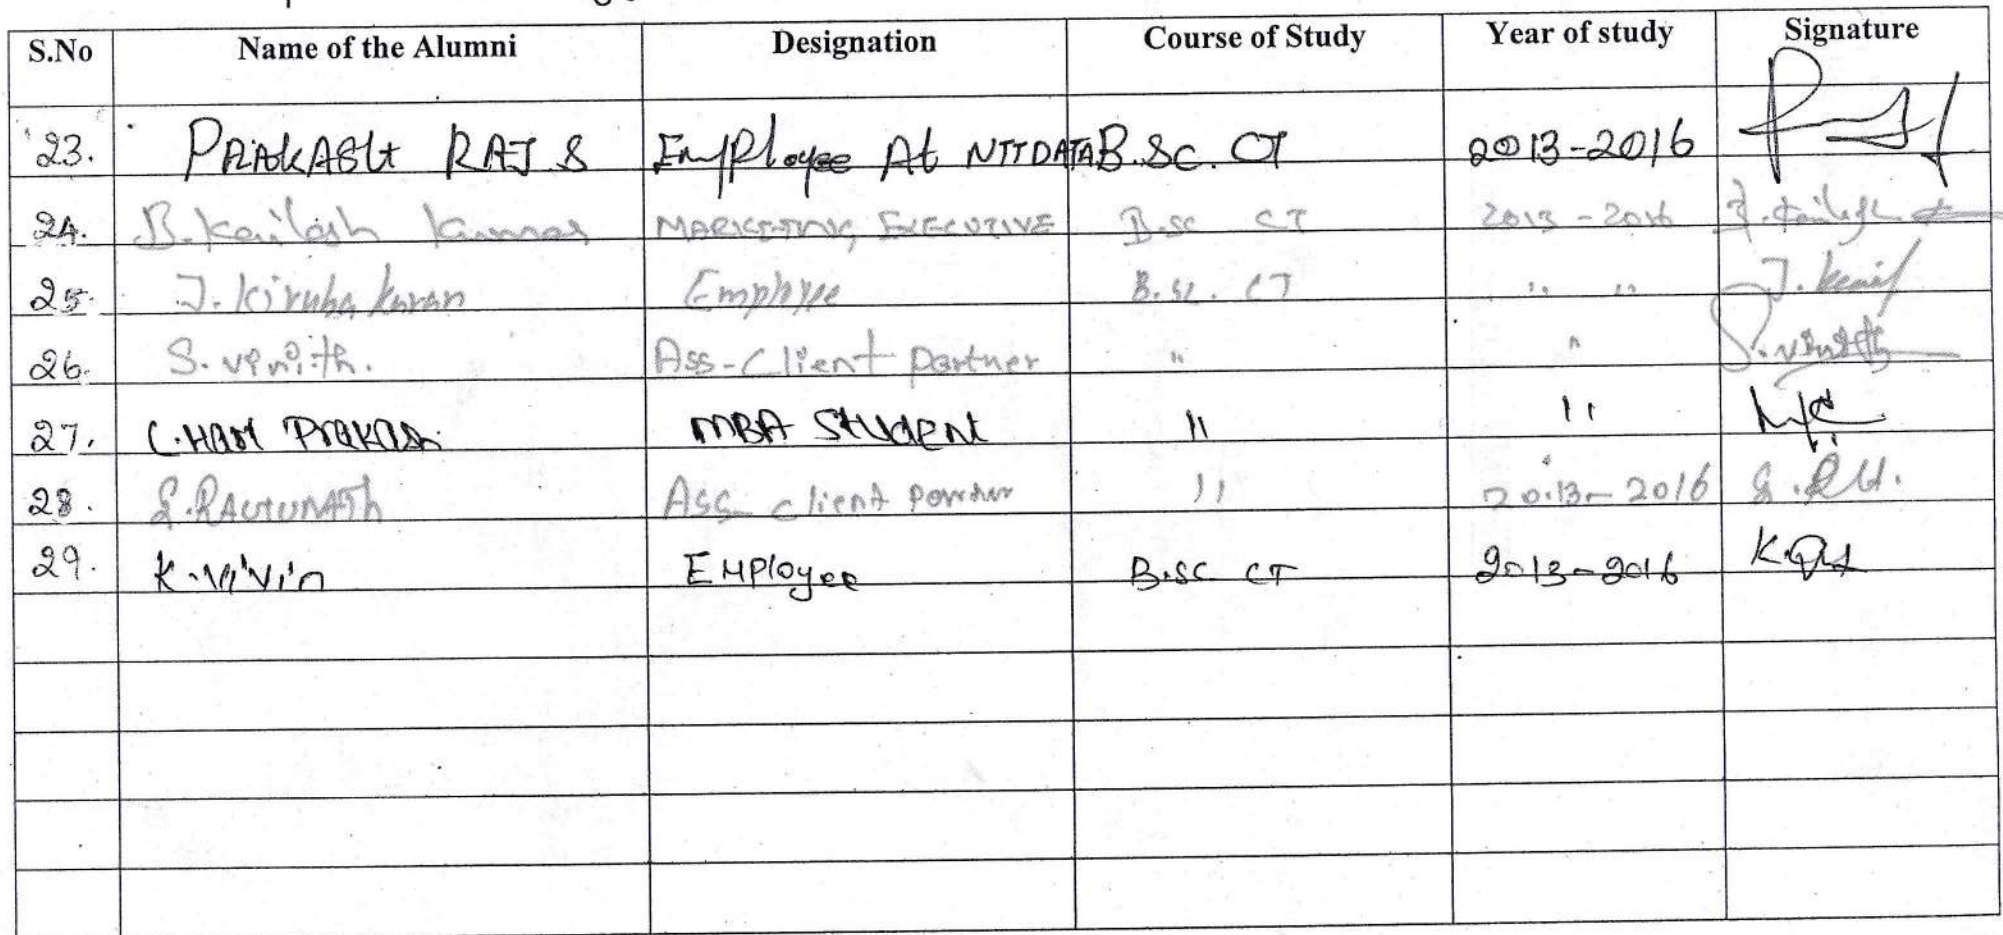 S.No Name of the Alumni Designation Course of Study Year of study Signature
23. PRAKASH RAJ S Employee At NTTDATA B.SC. CT 2013-2016
24. B.Kailash Kumar MARKETING EXECUTIVE B.sc CT 2013-2016 B.Kailash
25. J. Kirubakaran Employee B.sc. CT " "
26. S. vinith. Ass-Client partner " " S.vinith
27. C.Hari Prakash MBA Student " "
28. S.RAGUNATH Ass- client partner " 2013-2016
29. K.Vivin EMPloyee B.SC CT 2013-2016